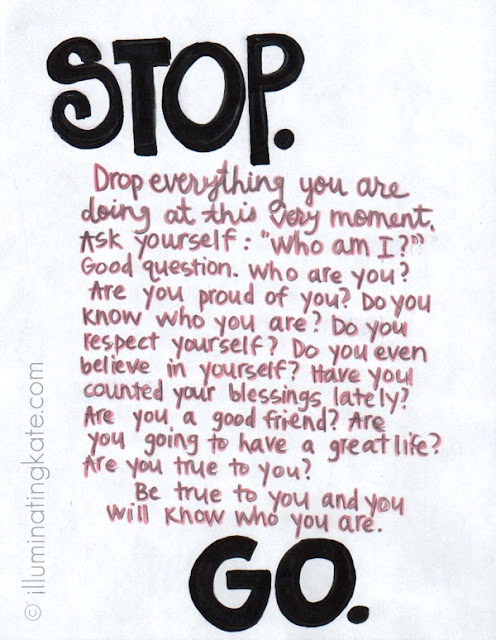 STOP.
Drop everything you are
doing at this very moment.
Ask yourself: "Who am I?"
Good question. Who are you?
Are you proud of you? Do you
know who you are? Do you
respect yourself? Do you even
believe in yourself? Have you
counted your blessings lately?
Are you a good friend? Are
you going to have a great life?
Are you true to you?
Be true to you and you
will know who you are.
GO.
© illuminatingkate.com